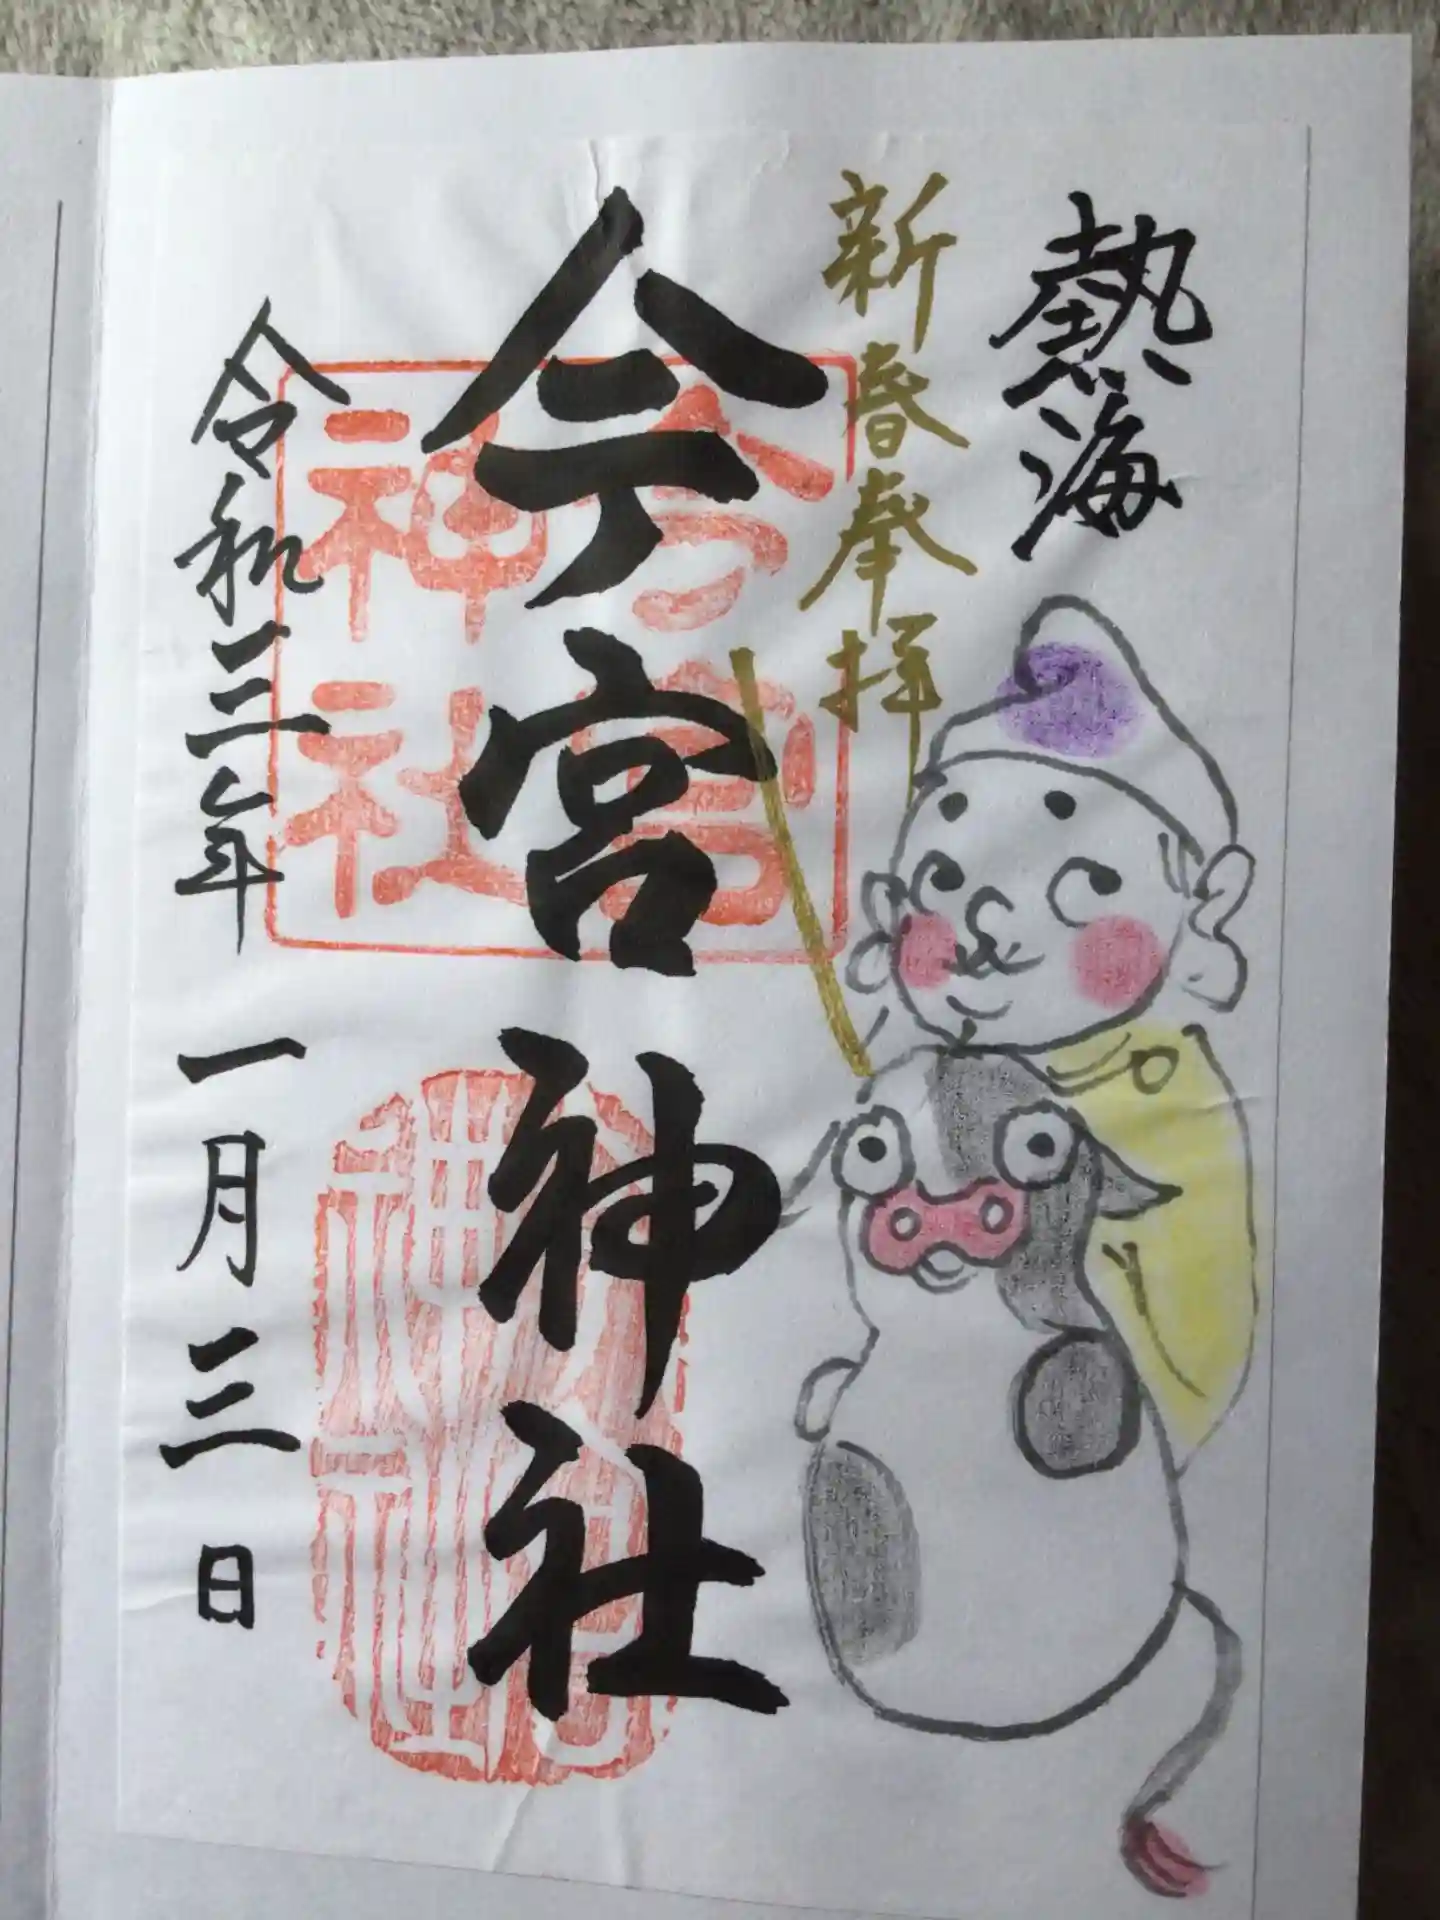 熱海
新春奉拝
今宮神社
令和三年一月三日
今宮神社